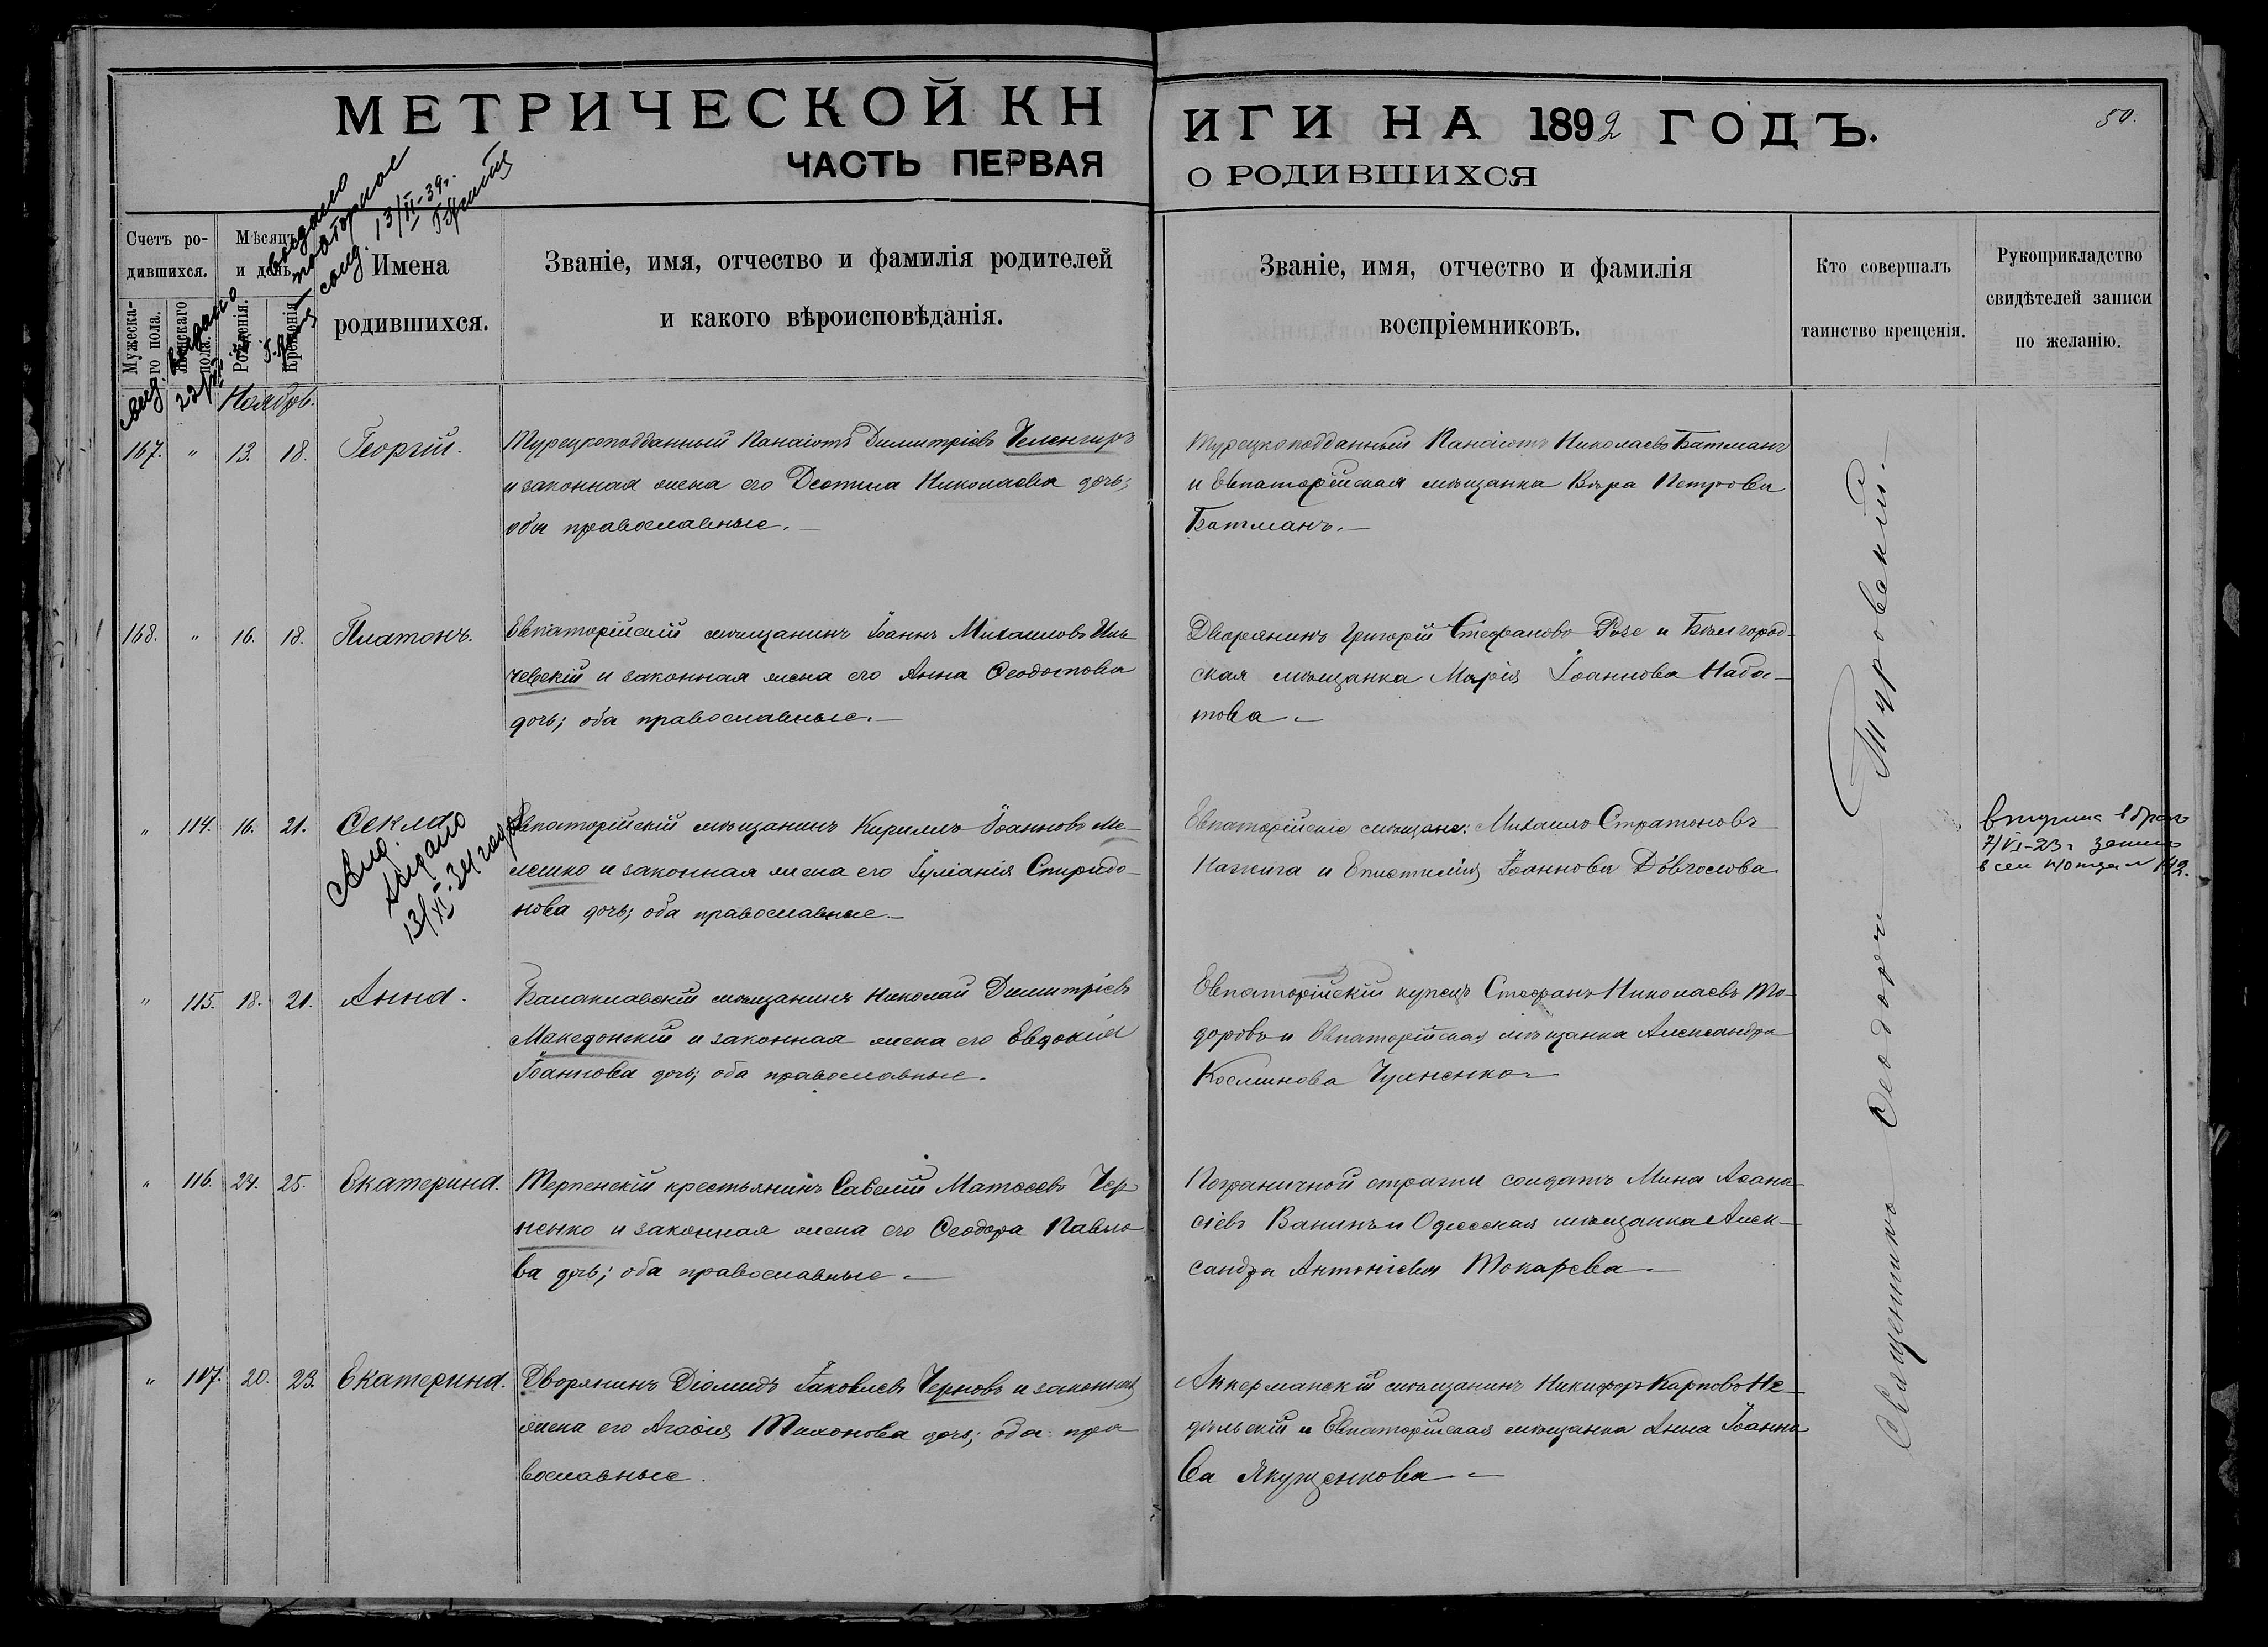 МЕТРИЧЕСКОЙ КНИГИ НА 1892 ГОДЪ.
50.
ЧАСТЬ ПЕРВАЯ О РОДИВШИХСЯ
выдано
повторное
13/II-39г.
Счетъ родившихся.
Мужескаго пола.
Женскаго пола.
Мѣсяцъ и день
Рожденія.
Крещенія.
Имена
родившихся.
Званіе, имя, отчество и фамилія родителей
и какого вѣроисповѣданія.
Званіе, имя, отчество и фамилія
воспріемниковъ.
Кто совершалъ
таинство крещенія.
Рукоприкладство
свидѣтелей записи
по желанію.
Ноябрь.
167. " 13. 18. Георгій.
Турецкоподданный Панаіотъ Димитріевъ Челенгиръ
и законная жена его Николаева дочь;
оба православные.
Турецкоподданный Панаіотъ Николаевъ Батманъ
и Евпаторійская мѣщанка Вѣра Петрова
Батманъ.
168. " 16. 18. Платонъ.
Евпаторійскій мѣщанинъ Іоаннъ Михаиловъ
и законная жена его Анна Ѳеодотова
дочь; оба православные.
Дворянинъ Григорій Стефановъ Розе и Бѣлгород-
ская мѣщанка Марія Іоаннова Наба-
това.
" 114. 16. 21. Ѳекла
Свид.
выдано
13/XI-34 года
Евпаторійскій мѣщанинъ Кириллъ Іоанновъ Ме-
лешко и законная жена его Іуліанія Спиридо-
нова дочь; оба православные.
Евпаторійскіе мѣщане: Михаилъ Стратоновъ
и Епистимія Іоаннова
вступила в бракъ
7/VI-23г
" 115. 18. 21. Анна.
Балаклавскій мѣщанинъ Николай Димитріевъ
Македонскій и законная жена его Евдокія
Іоаннова дочь; оба православные.
Евпаторійскій купецъ Стефанъ Николаевъ То-
доровъ и Евпаторійская мѣщанка Александра
Косминова
" 116. 24. 25. Екатерина.
Терпенскій крестьянинъ Савелій Матѳеевъ Чер-
ненко и законная жена его Ѳеодора Павло-
ва дочь; оба православные.
Пограничной стражи солдатъ Мина Аѳана-
сіевъ Ванинъ и Одесская мѣщанка Алек-
сандра Антоніева Токарева
" 117. 20. 23. Екатерина.
Дворянинъ Діомидъ Іаковлевъ Черновъ и законная
жена его Агаѳія Тихонова дочь; оба пра-
вославные.
Аккерманскій мѣщанинъ Никифоръ Карповъ Не-
дѣльскій и Евпаторійская мѣщанка Анна Іоанно-
ва Якущенкова
Священникъ Ѳеодоръ Туровскій.